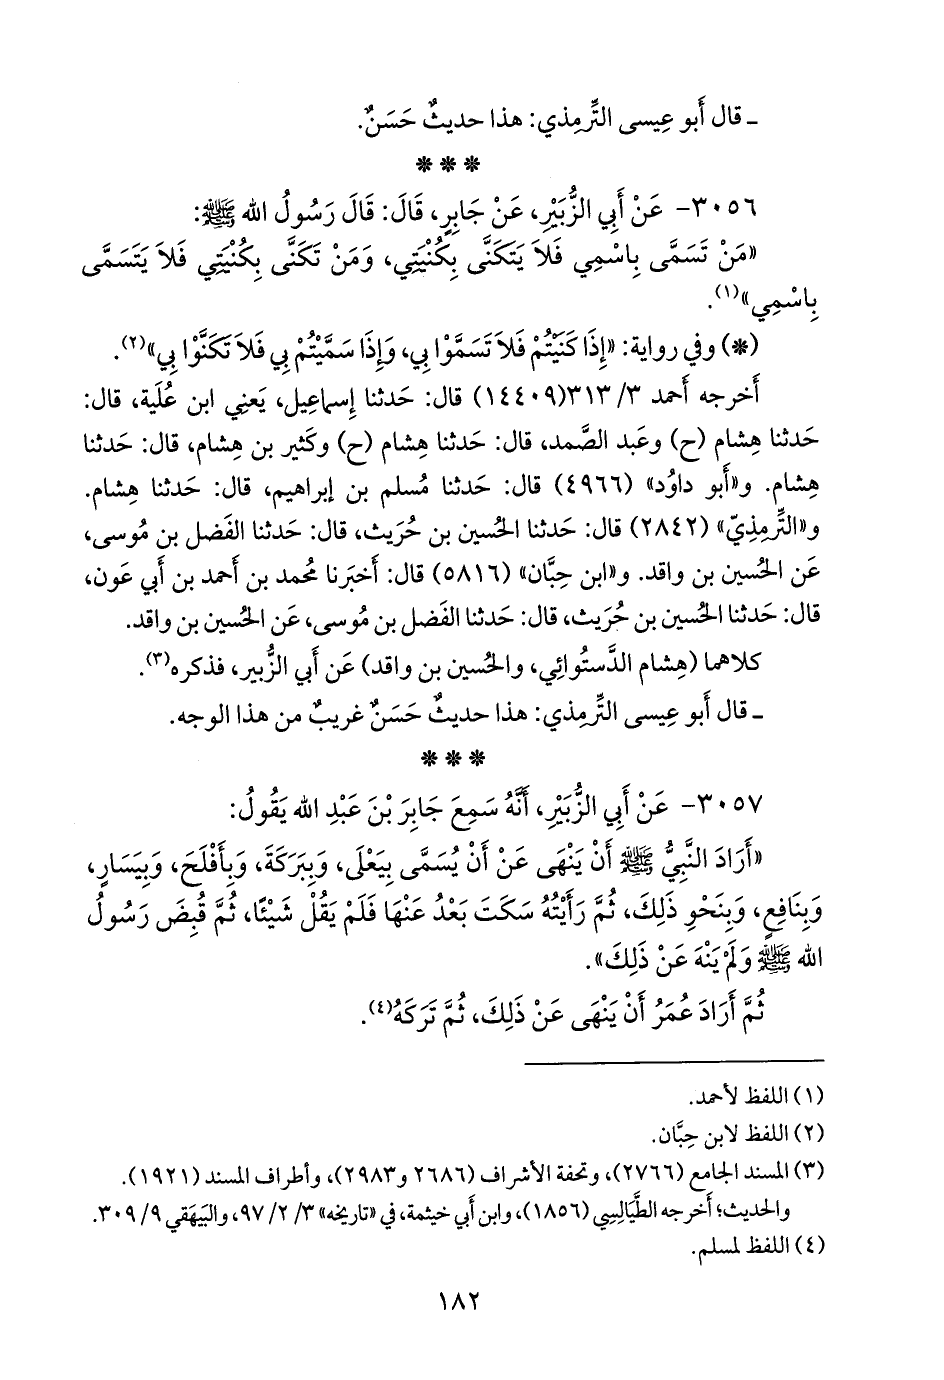 ـ قال أَبو عِيسى التِّرمِذي: هذا حديثٌ حَسَنٌ.
* * *
٣٠٥٦- عَنْ أَبِي الزُّبَيْرِ، عَنْ جَابِرٍ، قَالَ: قَالَ رَسُولُ الله ﷺ:
«مَنْ تَسَمَّى بِاسْمِي فَلاَ يَتَكَنَّى بِكُنْيَتِي، وَمَنْ تَكَنَّى بِكُنْيَتِي فَلاَ يَتَسَمَّى
بِاسْمِي»(١).
(*) وفي رواية: «إِذَا كَنَيْتُمْ فَلاَ تَسَمَّوْا بِي، وَإِذَا سَمَّيْتُمْ بِي فَلاَ تَكَنَّوْا بِي»(٢).
أَخرجه أَحمد ٣/ ٣١٣(١٤٤٠٩) قال: حَدثنا إِسماعِيل، يَعني ابن عُلَية، قال:
حَدثنا هِشام (ح) وعَبد الصَّمد، قال: حَدثنا هِشام (ح) وكَثير بن هِشام، قال: حَدثنا
هِشام. و«أَبو داوُد» (٤٩٦٦) قال: حَدثنا مُسلم بن إبراهيم، قال: حَدثنا هِشام.
و«التِّرمِذيّ» (٢٨٤٢) قال: حَدثنا الحُسين بن حُرَيث، قال: حَدثنا الفَضل بن مُوسى،
عَن الحُسين بن واقد. و«ابن حِبَّان» (٥٨١٦) قال: أَخبَرنا مُحمد بن أَحمد بن أَبي عَون،
قال: حَدثنا الحُسين بن حُرَيث، قال: حَدثنا الفَضل بن مُوسى، عَن الحُسين بن واقد.
كلاهما (هِشام الدَّستُوائِي، والحُسين بن واقد) عَن أَبي الزُّبير، فذكره(٣).
ـ قال أَبو عِيسى التِّرمِذي: هذا حديثٌ حَسَنٌ غريبٌ من هذا الوجه.
* * *
٣٠٥٧- عَنْ أَبِي الزُّبَيْرِ، أَنَّهُ سَمِعَ جَابِرَ بْنَ عَبْدِ الله يَقُولُ:
«أَرَادَ النَّبِيُّ ﷺ أَنْ يَنْهَى عَنْ أَنْ يُسَمَّى بِيَعْلَى، وَبِبَرَكَةَ، وَبِأَفْلَحَ، وَبِيَسَارٍ،
وَبِنَافِعٍ، وَبِنَحْوِ ذَلِكَ، ثُمَّ رَأَيْتُهُ سَكَتَ بَعْدُ عَنْهَا فَلَمْ يَقُلْ شَيْئًا، ثُمَّ قُبِضَ رَسُولُ
الله ﷺ وَلَمْ يَنْهَ عَنْ ذَلِكَ».
ثُمَّ أَرَادَ عُمَرُ أَنْ يَنْهَى عَنْ ذَلِكَ، ثُمَّ تَرَكَهُ(٤).
(١) اللفظ لأحمد.
(٢) اللفظ لابن حِبَّان.
(٣) المسند الجامع (٢٧٦٦)، وتحفة الأشراف (٢٦٨٦ و٢٩٨٣)، وأطراف المسند (١٩٢١).
والحديث؛ أَخرجه الطَّيَالِسِي (١٨٥٦)، وابن أَبي خيثمة، في «تاريخه» ٣/ ٢/ ٩٧، والبَيهَقي ٩/ ٣٠٩.
(٤) اللفظ لمسلم.
١٨٢